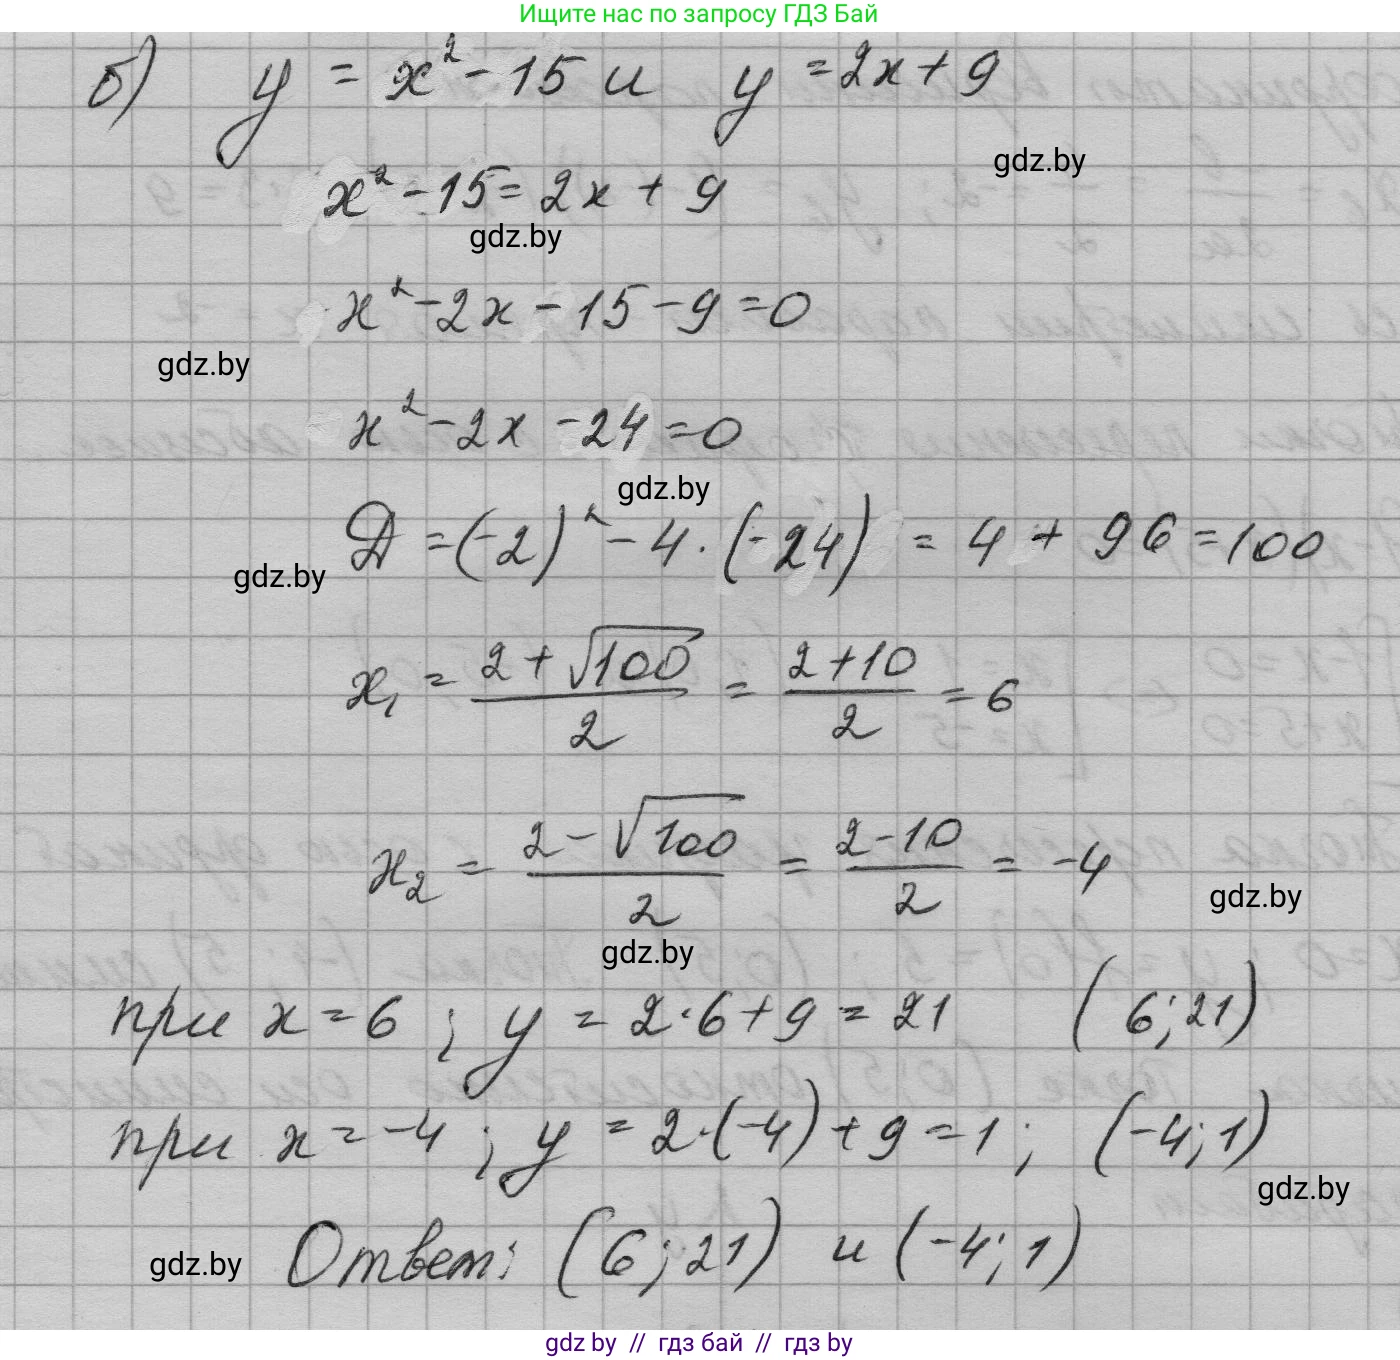 Ищите нас по запросу ГДЗ Бай
б) y = x² - 15 и y = 2x + 9
gdz.by
x² - 15 = 2x + 9
gdz.by
x² - 2x - 15 - 9 = 0
gdz.by
x² - 2x - 24 = 0
gdz.by
Д = (-2)² - 4 · (-24) = 4 + 96 = 100
gdz.by
x₁ = (2 + √100)/2 = (2 + 10)/2 = 6
x₂ = (2 - √100)/2 = (2 - 10)/2 = -4
gdz.by
gdz.by
при x = 6 ; y = 2 · 6 + 9 = 21 (6; 21)
при x = -4 ; y = 2 · (-4) + 9 = 1 ; (-4; 1)
gdz.by
Ответ: (6; 21) и (-4; 1)
gdz.by
gdz by // гдз бай // гдз by